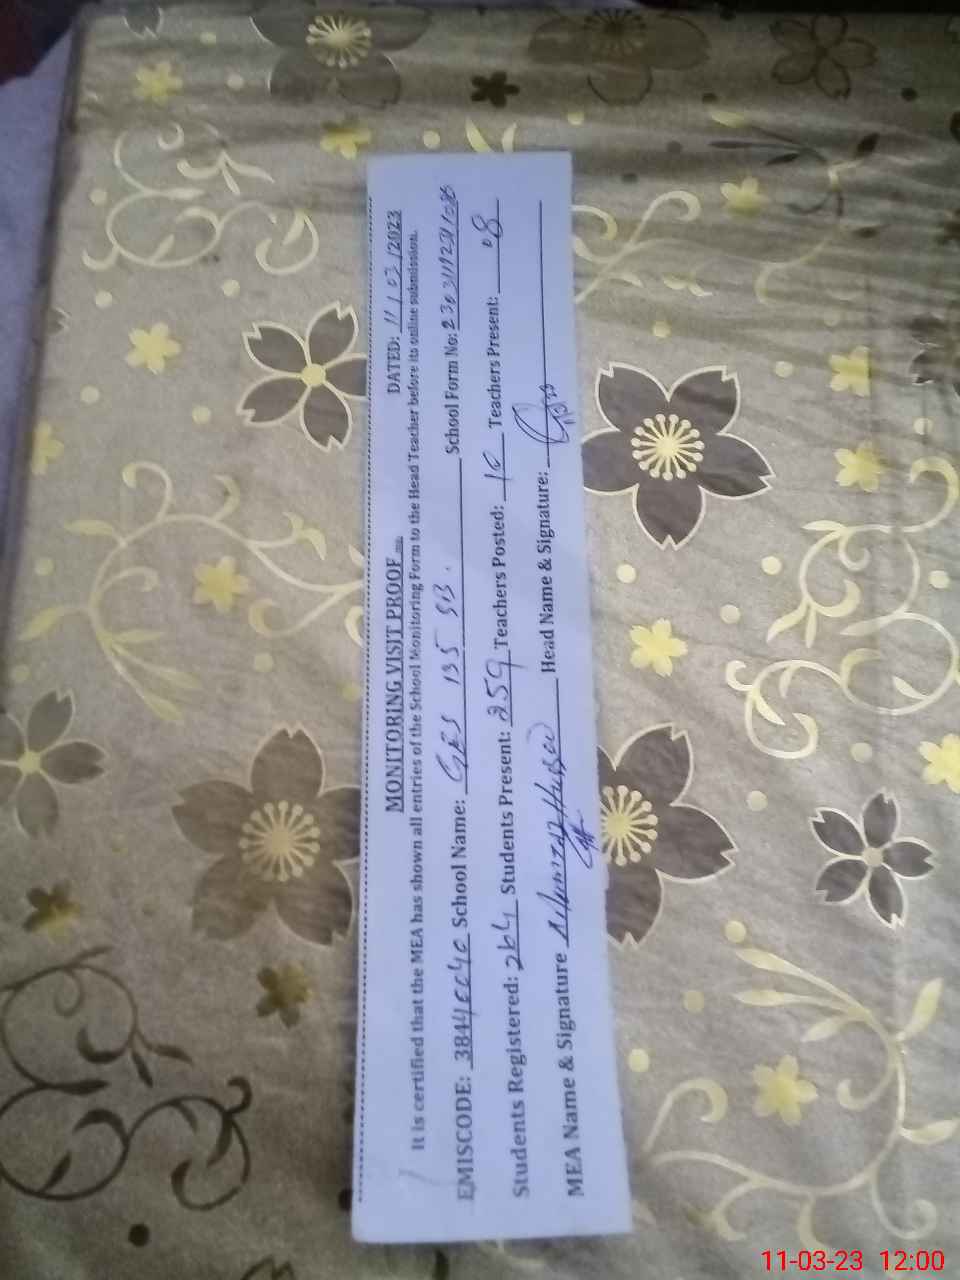 MONITORING VISIT PROOF DATED: 11/03/2023
It is certified that the MEA has shown all entries of the School Monitoring Form to the Head Teacher before its online submission.
EMISCODE: 38440040 School Name: GES 135 SB. School Form No:
Students Registered: 264 Students Present: 259 Teachers Posted: 10 Teachers Present: 08
MEA Name & Signature Head Name & Signature:
11-03-23 12:00